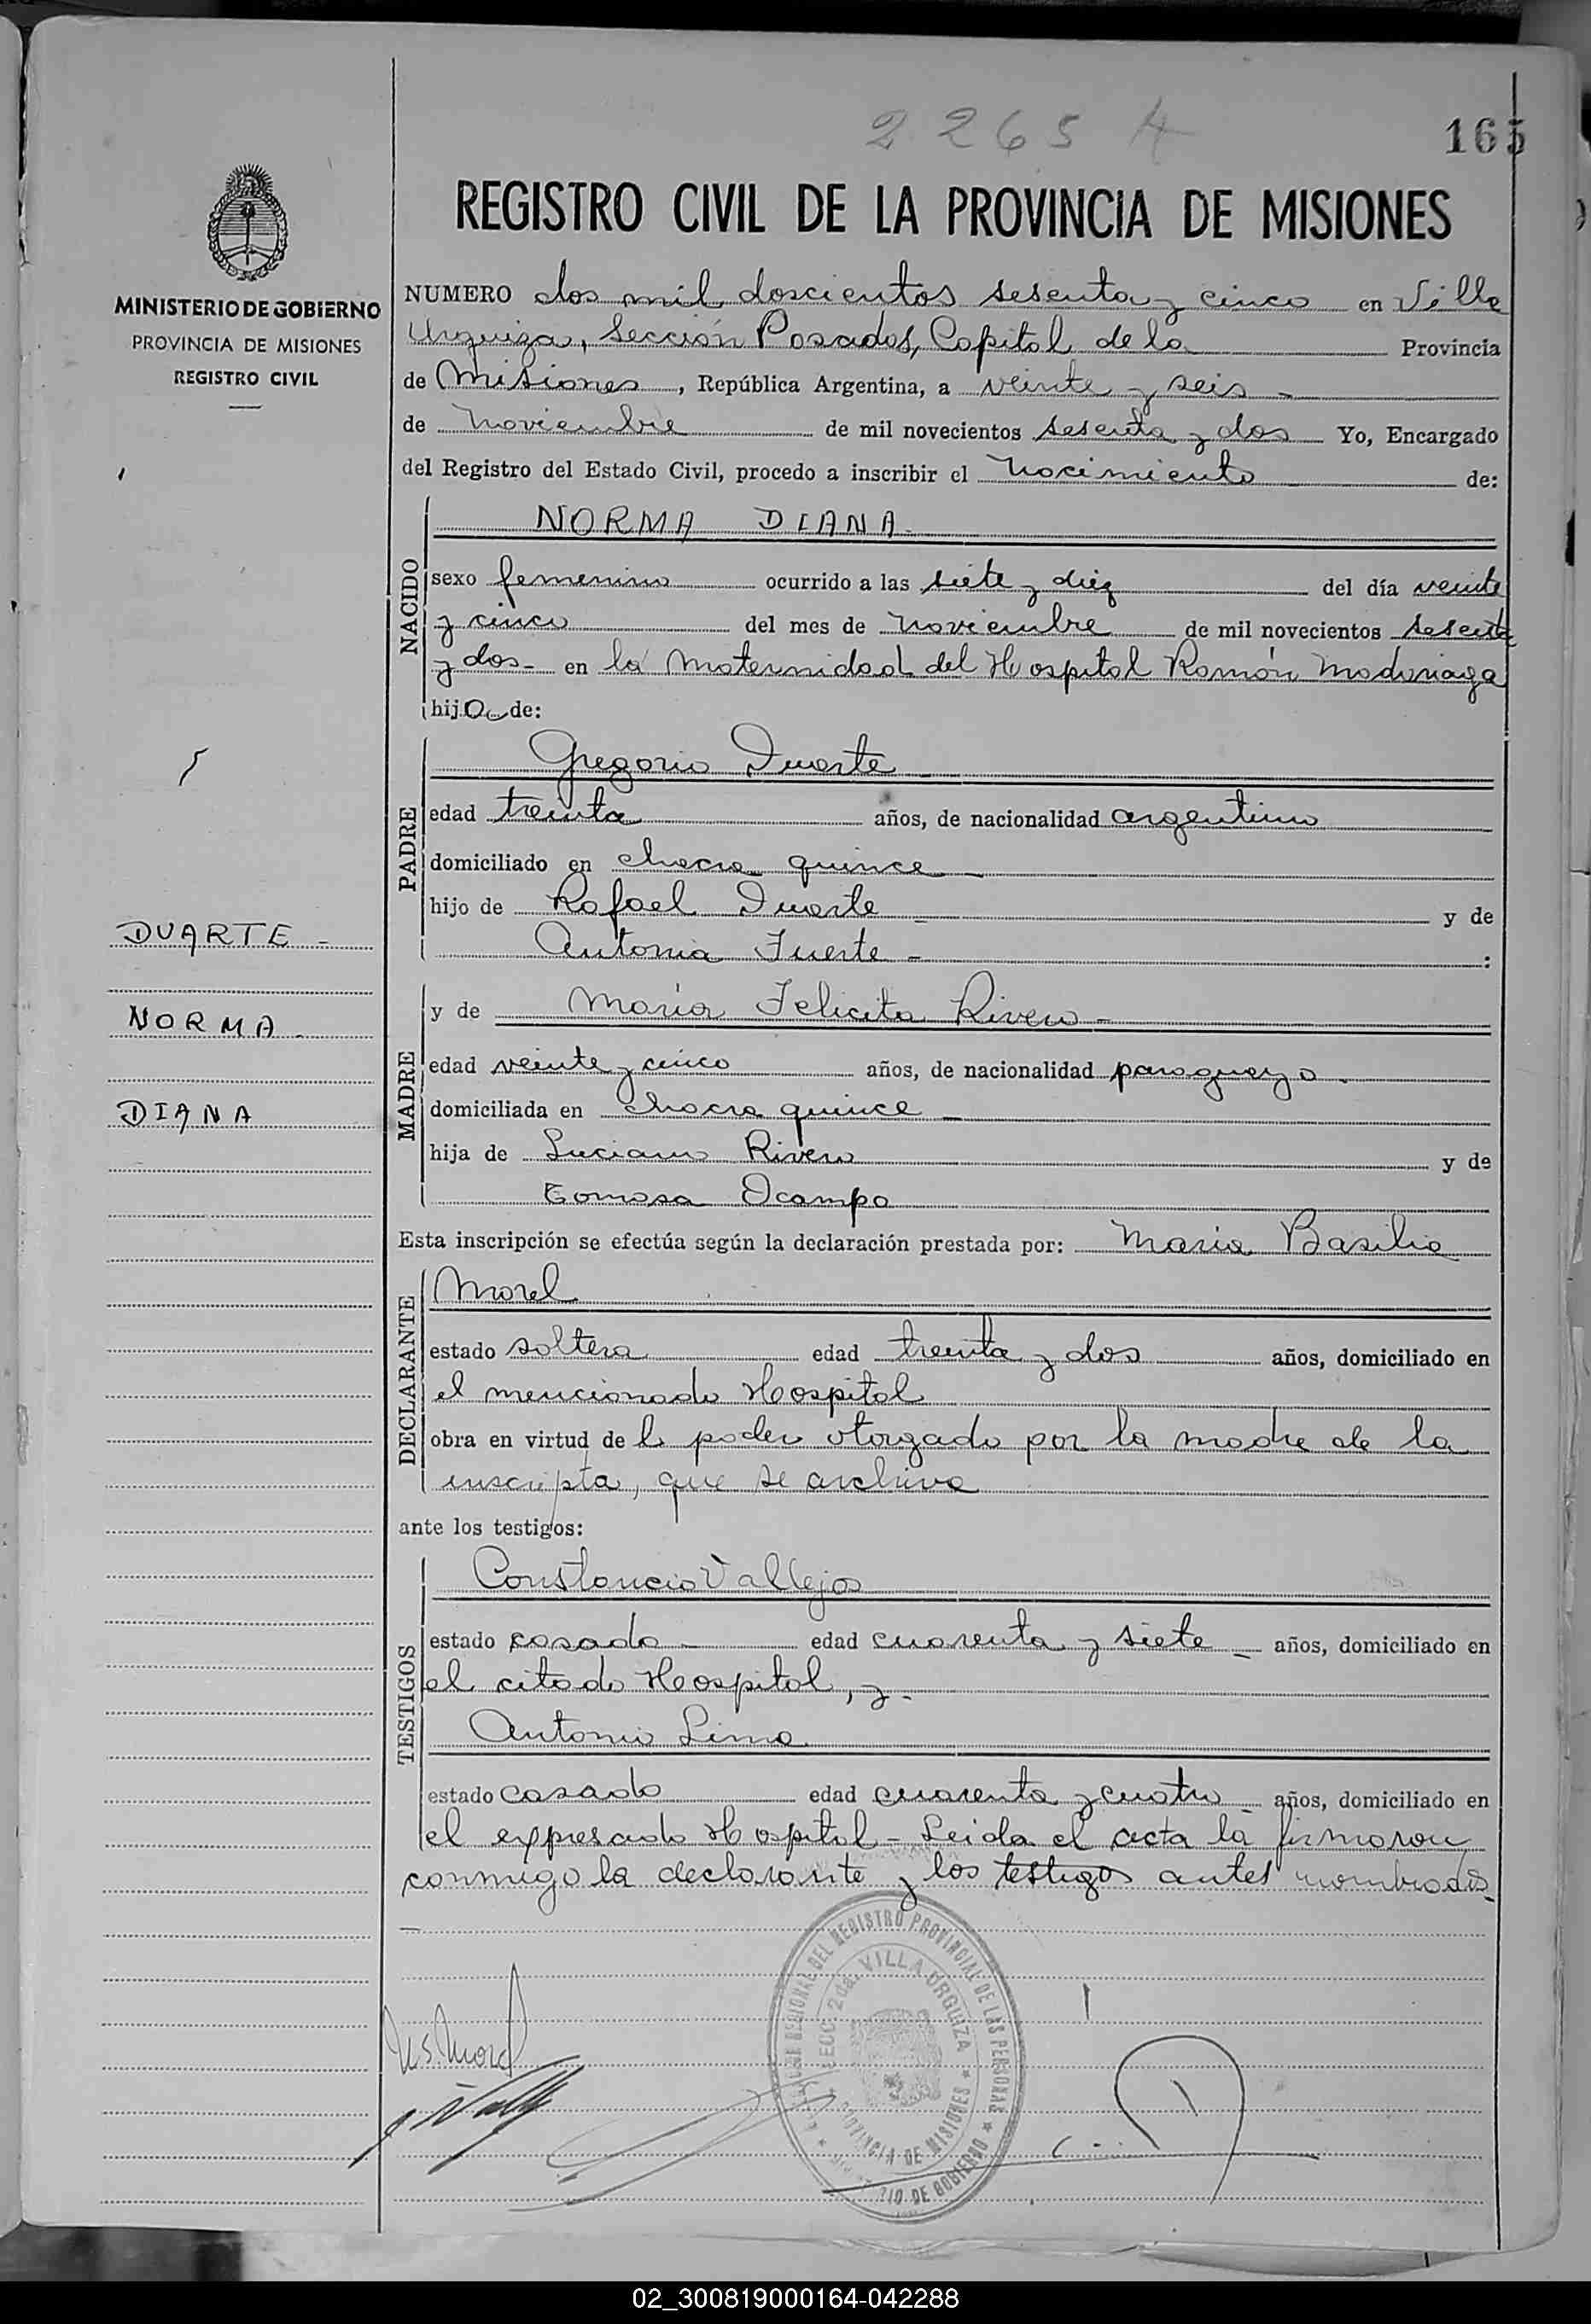 2265 A
165
REGISTRO CIVIL DE LA PROVINCIA DE MISIONES
MINISTERIO DE GOBIERNO
PROVINCIA DE MISIONES
REGISTRO CIVIL
NUMERO dos mil doscientos sesenta y cinco en Villa
Urquiza, Sección Posadas, Capital de la Provincia
de Misiones, República Argentina, a veinte y seis -
de Noviembre de mil novecientos sesenta y dos Yo, Encargado
del Registro del Estado Civil, procedo a inscribir el Nacimiento de:
NACIDO
NORMA DIANA -
sexo femenino ocurrido a las siete y diez del día veinte
y cinco del mes de Noviembre de mil novecientos sesenta
y dos - en la Maternidad del Hospital Ramón Madariaga
hija de:
PADRE
Gregorio Duarte
edad treinta años, de nacionalidad argentino
domiciliado en chacra quince -
hijo de Rafael Duarte - y de
Antonia Fuerte - :
DUARTE -
NORMA -
DIANA
MADRE
y de María Felicita Rivero -
edad veinte y cinco años, de nacionalidad paraguaya -
domiciliada en chacra quince -
hija de Luciano Rivero y de
Tomasa Ocampo
Esta inscripción se efectúa según la declaración prestada por: Maria Basilia
DECLARANTE
Morel
estado soltera edad treinta y dos años, domiciliado en
el mencionado Hospital
obra en virtud del poder otorgado por la madre de la
inscripta, que se archiva
ante los testigos:
TESTIGOS
Constancio Vallejos
estado casado - edad cuarenta y siete - años, domiciliado en
el citado Hospital, y -
Antonio Lima
estado casado edad cuarenta y cuatro - años, domiciliado en
el expresado Hospital - Leida el acta la firmaron
conmigo la declarante y los testigos antes nombrados -
REGIONAL DEL REGISTRO PROVINCIAL DE LAS PERSONAS
SECC. 2da. VILLA URQUIZA
PROVINCIA DE MISIONES
DE GOBIERNO
Morel
02_300819000164-042288